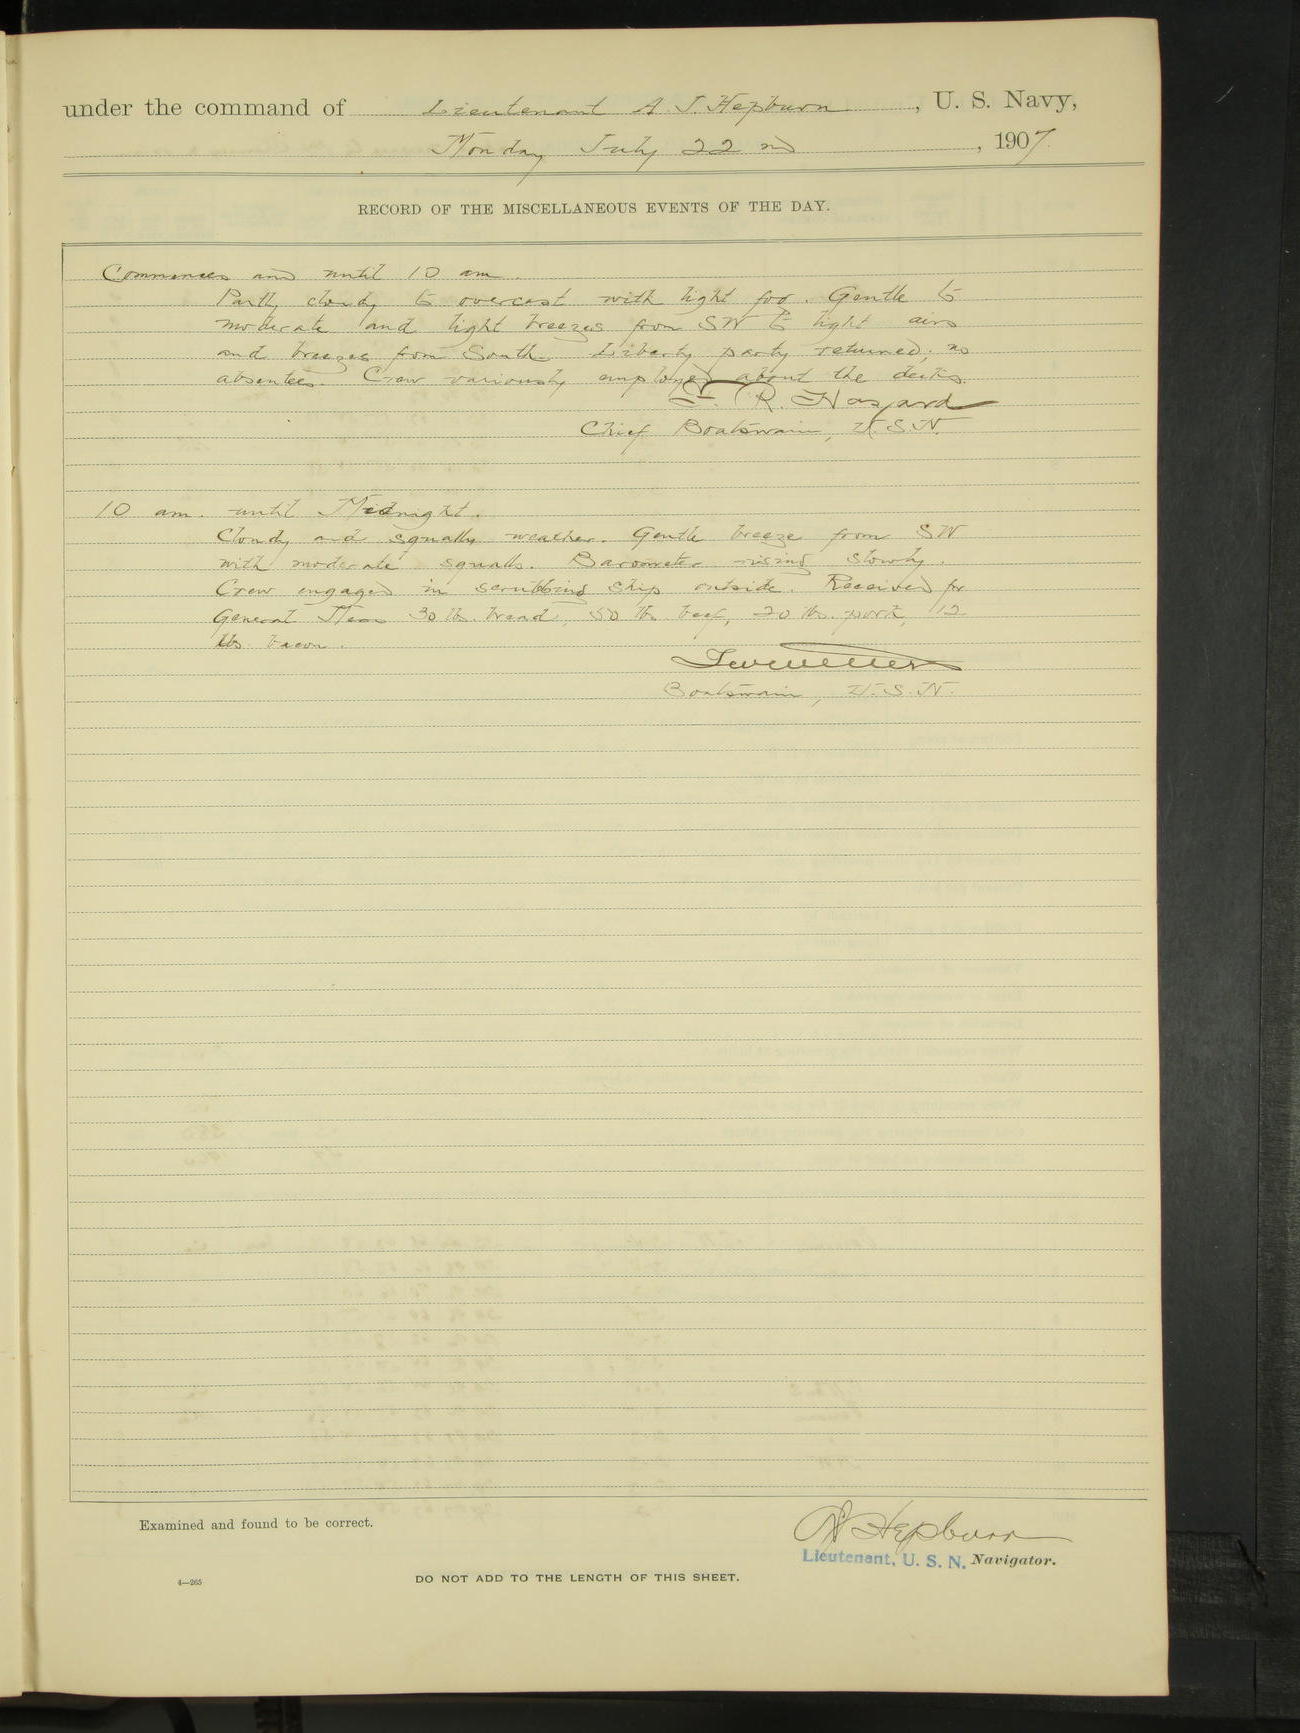 under the command of Lieutenant A. J. Hepburn, U. S. Navy,
Monday July 22nd, 1907.
RECORD OF THE MISCELLANEOUS EVENTS OF THE DAY.
Commences and until 10 am.
Partly cloudy to overcast with light fog. Gentle to
moderate and light breezes from SW to light airs
and breezes from South. Liberty party returned; no
absentees. Crew variously employed about the decks.
F. R. Hazard
Chief Boatswain, U.S.N.
10 am. until Midnight.
Cloudy and squally weather. Gentle breeze from SW
with moderate squalls. Barometer rising slowly.
Crew engaged in scrubbing ship outside. Received for
General Mess 30 lbs. bread, 50 lbs. beef, 20 lbs. pork, 12
lbs. bacon.
Boatswain, U.S.N.
Examined and found to be correct.
A J Hepburn
Lieutenant, U. S. N. Navigator.
4—265
DO NOT ADD TO THE LENGTH OF THIS SHEET.